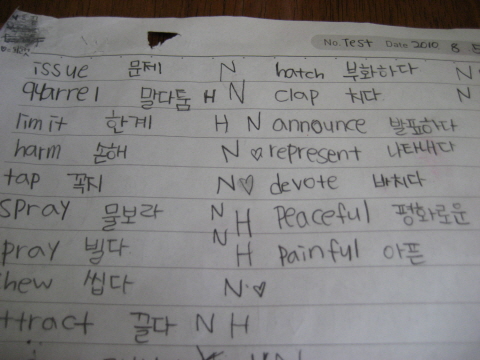 No. Test Date 2010 8
issue 문제 N hatch 부화하다 N
quarrel 말다툼 H N clap 치다 N
limit 한계 H N announce 발표하다
harm 손해 N ♡ represent 나타내다
tap 꼭지 N ♡ devote 바치다
spray 물보라 N H peaceful 평화로운
pray 빌다 N H painful 아픈
hew 씹다 N ♡
ttract 끌다 N H